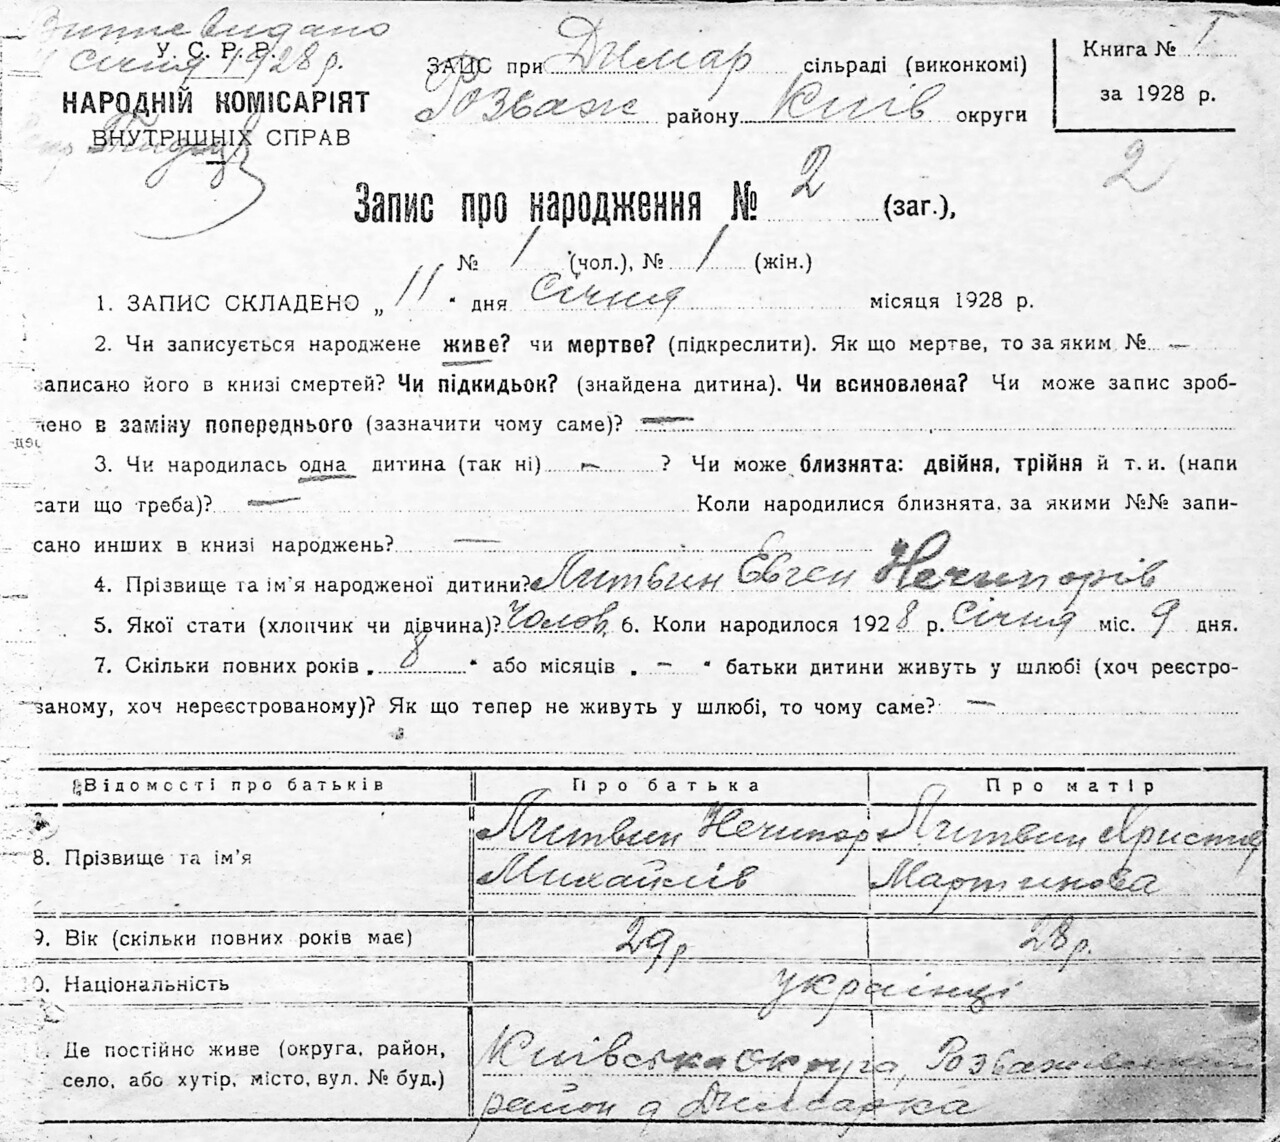 Витне видано
1 січня 1928 р.
У. С. Р. Р.
НАРОДНІЙ КОМІСАРІЯТ
ВНУТРІШНІХ СПРАВ
ЗАГС при Димар сільраді (виконкомі)
Розваж району Київ округи
Книга № I
за 1928 р.
2
Запис про народження № 2 (заг.),
№ 1 (чол.), № 1 (жін.)
1. ЗАПИС СКЛАДЕНО „ 11 " дня січня місяця 1928 р.
2. Чи записується народжене живе? чи мертве? (підкреслити). Як що мертве, то за яким № —
записано його в книзі смертей? Чи підкидьок? (знайдена дитина). Чи всиновлена? Чи може запис зроб-
лено в заміну попереднього (зазначити чому саме)? —
3. Чи народилась одна дитина (так ні) — ? Чи може близнята: двійня, трійня й т. и. (напи
сати що треба)? — Коли народилися близнята, за якими №№ запи-
сано инших в книзі народжень? —
4. Прізвище та ім'я народженої дитини? Литвин Євген Нечипорів
5. Якої стати (хлопчик чи дівчина)? Чолов. 6. Коли народилося 1928 р. січня міс. 9 дня.
7. Скільки повних років „ 8 " або місяців „ — " батьки дитини живуть у шлюбі (хоч реєстро-
ваному, хоч нереєстрованому)? Як що тепер не живуть у шлюбі, то чому саме? —
Відомості про батьків Про батька Про матір
8. Прізвище та ім'я Литвин Нечипор Михайлів Литвин Христія Мартинова
9. Вік (скільки повних років має) 29 р. 28 р.
10. Національність українці
Де постійно живе (округа, район, Київська округа, Розважівський
село, або хутір, місто, вул. № буд.) район д Димарка